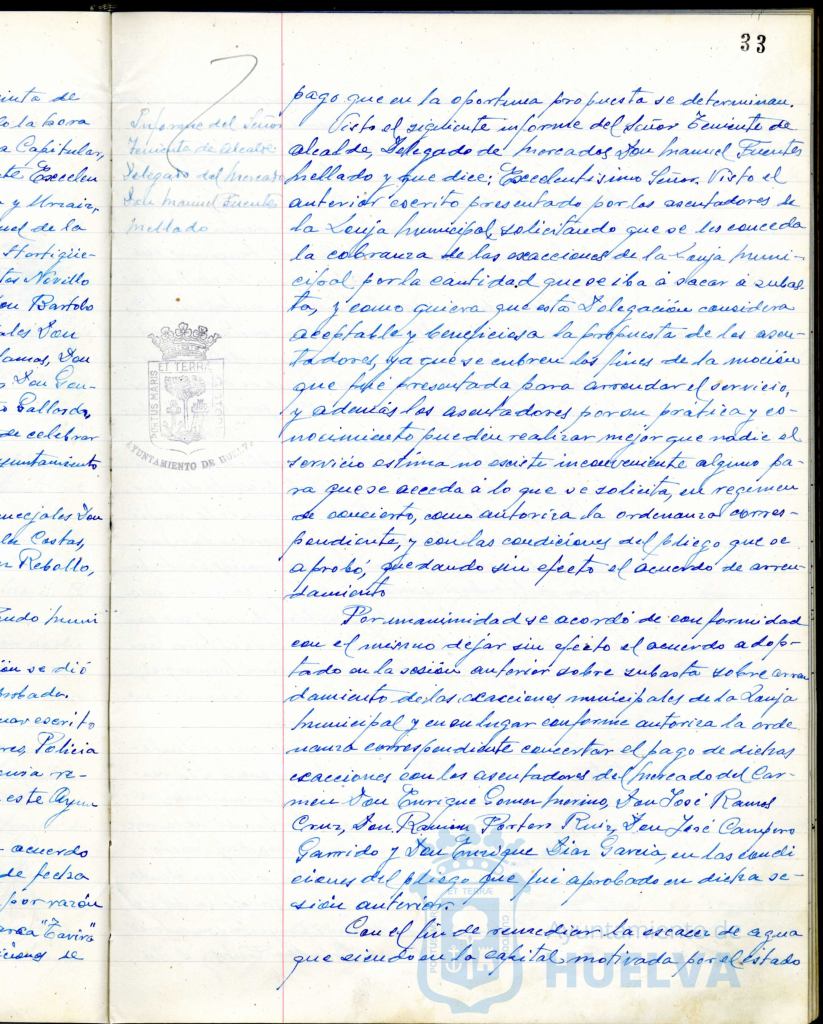 33
pago que en la oportuna propuesta se determinan.
Visto el siguiente informe del Señor Teniente de
alcalde, Delegado de mercados Don Manuel Fuentes
Mellado y que dice; Excelentisimo Señor. Visto el
anterior escrito presentado por los asentadores de
la Lonja Municipal, solicitando que se les conceda
la cobranza de las exacciones de la Lonja Muni-
cipal por la cantidad que se iba á sacar á subas-
ta, y como quiera que esta Delegación considera
aceptable y beneficiosa la propuesta de los asen-
tadores, ya que se cubren los fines de la moción
que fué presentada para arrendar el servicio,
y además los asentadores por su pratica y co-
nocimiento pueden realizar mejor que nadie el
servicio estima no existe inconveniente alguno pa-
ra que se acceda á lo que se solicita, en regimen
de concierto, como autoriza la ordenanza corres-
pondiente, y con las condiciones del pliego que se
aprobó, quedando sin efecto el acuerdo de arren-
damiento
Por unanimidad se acordó de conformidad
con el mismo dejar sin efecto el acuerdo adop-
tado en la sesión anterior sobre subasta sobre arren
damiento de las exacciones municipales de la Lonja
Municipal y en su lugar conforme autoriza la orde
nanza correspondiente concertar el pago de dichas
exacciones con los asentadores del Mercado del Car-
men Don Enrique Gomez Merino, Don José Ramos
Cruz, Don Ramon Portero Ruiz, Don José Campero
Garrido y Don Enrique Diaz Garcia, en las condi
ciones del pliego que fué aprobado en dicha se-
sión anterior.
Con el fin de remediar la escacez de agua
que siendo en la capital motivada por el estado
Informe del Señor
Teniente de alcalde
Delegado del Mercado
Don Manuel Fuentes
Mellado
PORTUS MARIS ET TERRÆ CUSTODIA
AYUNTAMIENTO DE HUELVA
inta de
o la hora
a Capitular,
te Excelen
uel de la
tos Nivillo
on Bartolo
ales Don
lamas, Don
Don Gon-
Gallardo,
se celebrar
yuntamiento
ncejales Don
la Costas,
Rebollo,
ndo muni
ión se dió
probada.
escrito
Policia
este Ayun
acuerdo
de fecha
por razón
"Tavira"
iciones se
Ayuntamiento de
HUELVA